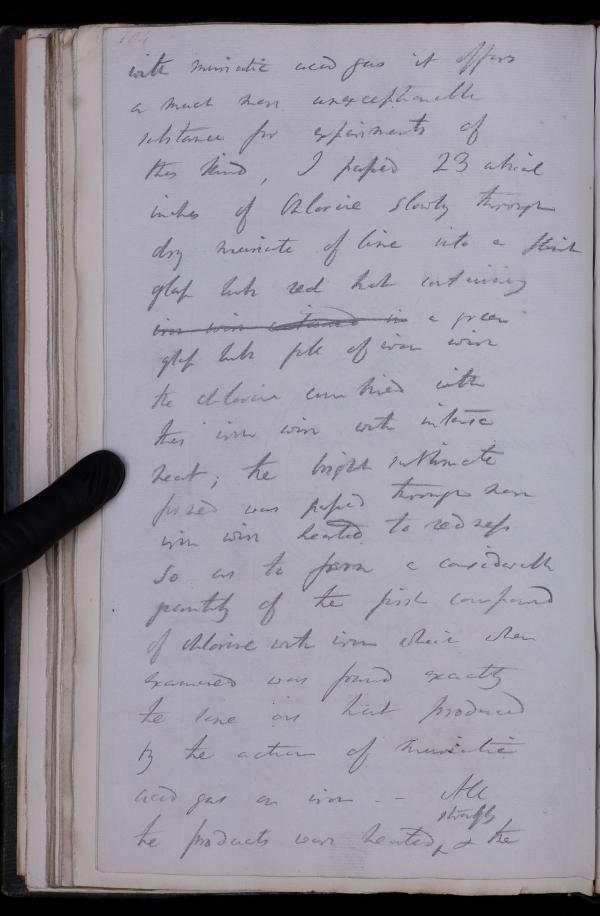 with muriatic acid gas it offers
a much more unexceptionable
substance for experiments of
this kind, I passed 23 cubical
inches of Chlorine slowly through
dry muriate of lime into a
glass tube red hot containing
iron wire contained in a green
glass tube full of iron wire
the chlorine combined with
this iron wire with intense
heat; the bright sublimate
formed was passed through more
iron wire heated to redness
so as to form a considerable
quantity of the first compound
of chlorine with iron which when
examined was found exactly
the same as that produced
by the action of muriatic
acid gas on iron. – All
strongly
the products were heated, & the